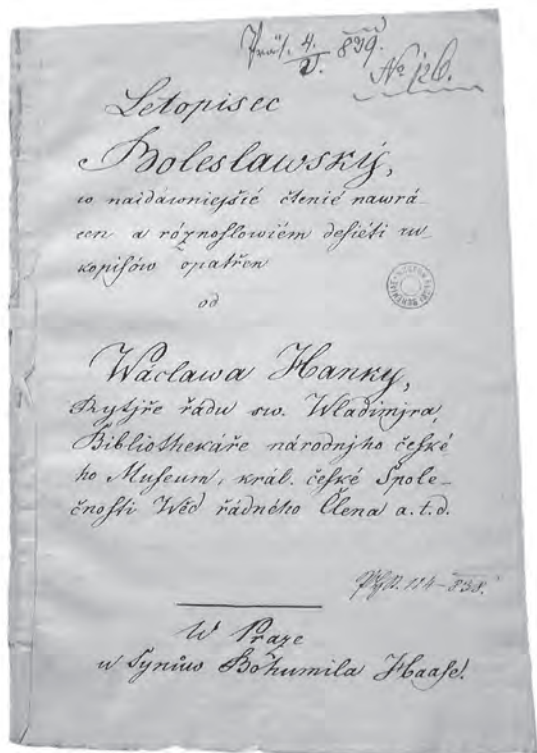 4. 839.
No 126.
Letopisec
Boleslawský,
w naidáwniejšié čtenié nawrá-
cen a róznoslowiém desiéti ru-
kopisów opatřen
od
Wáclawa Hanky,
Rytjře řádu sw. Wladimjra,
Bibliothekáře národnjho české-
ho Museum, král. české Spole-
čnosti Wěd řádného Člena a.t.d.
114-838.
W Praze
u Synůw Bohumila Haase.